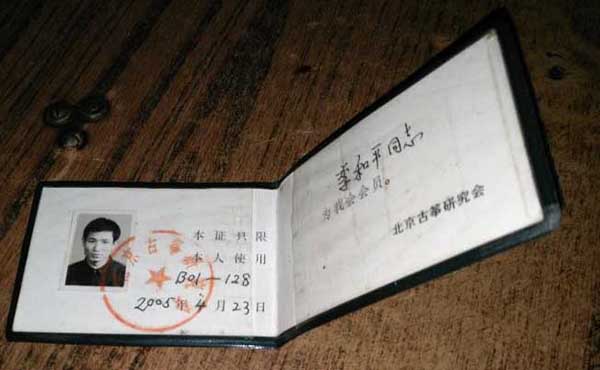 本证只限
本人使用
B01—128
2005年4月23日
李和平同志
为我会会员。
北京古筝研究会